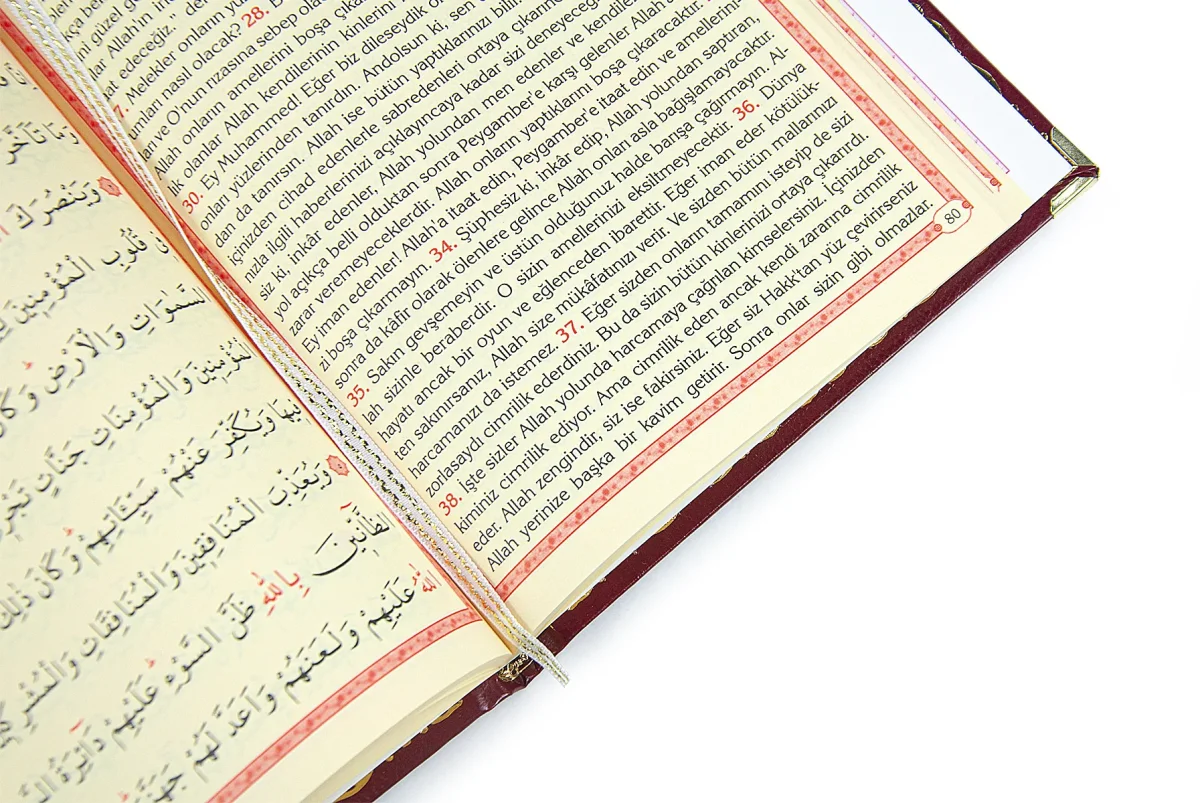 Melekler onların
umları nasıl olacak? 28.
ve O'nun rızasına sebep
Allah onların amellerini boşa
lik olanlar Allah kendilerinin kinlerini
30. Ey Muhammed! Eğer biz dileseydik
onları yüzlerinden tanırdın. Andolsun ki, sen
dan da tanırsın. Allah ise bütün yaptıklarınızı
içinizden cihad edenlerle sabredenleri ortaya
nızla ilgili haberlerinizi açıklayıncaya kadar sizi
siz ki, inkâr edenler, Allah yolundan men edenler ve
yol açıkça belli olduktan sonra Peygamber'e karşı gelenler
zarar veremeyeceklerdir. Allah onların yaptıklarını boşa çıkaracaktır.
Ey iman edenler! Allah'a itaat edin, Peygamber'e itaat edin ve amellerini-
zi boşa çıkarmayın. 34. Şüphesiz ki, inkâr edip, Allah yolundan saptıran,
sonra da kâfir olarak ölenlere gelince Allah onları asla bağışlamayacaktır.
35. Sakın gevşemeyin ve üstün olduğunuz halde barışa çağırmayın. Al-
lah sizinle beraberdir. O sizin amellerinizi eksiltmeyecektir. 36. Dünya
hayatı ancak bir oyun ve eğlenceden ibarettir. Eğer iman eder kötülük-
ten sakınırsanız, Allah size mükâfatınızı verir. Ve sizden bütün mallarınızı
harcamanızı da istemez. 37. Eğer sizden onların tamamını isteyip de sizi
zorlasaydı cimrilik ederdiniz. Bu da sizin bütün kinlerinizi ortaya çıkarırdı.
38. İşte sizler Allah yolunda harcamaya çağrılan kimselersiniz. İçinizden
kiminiz cimrilik ediyor. Ama cimrilik eden ancak kendi zararına cimrilik
eder. Allah zengindir, siz ise fakirsiniz. Eğer siz Hakk'tan yüz çevirirseniz
Allah yerinize başka bir kavim getirir. Sonra onlar sizin gibi olmazlar.
80
وَيَنْصُرَكَ
قُلُوبِ الْمُؤْمِنِينَ
السَّمٰوَاتِ وَالْاَرْضِ
الْمُؤْمِنِينَ وَالْمُؤْمِنَاتِ جَنَّاتٍ
وَيُكَفِّرَ عَنْهُمْ سَيِّئَاتِهِمْ وَكَانَ ذٰلِكَ
وَيُعَذِّبَ الْمُنَافِقِينَ وَالْمُنَافِقَاتِ
الظَّانِّينَ بِاللّٰهِ ظَنَّ السَّوْءِ عَلَيْهِمْ دَائِرَةُ
اللّٰهُ عَلَيْهِمْ وَلَعَنَهُمْ وَاَعَدَّ لَهُمْ